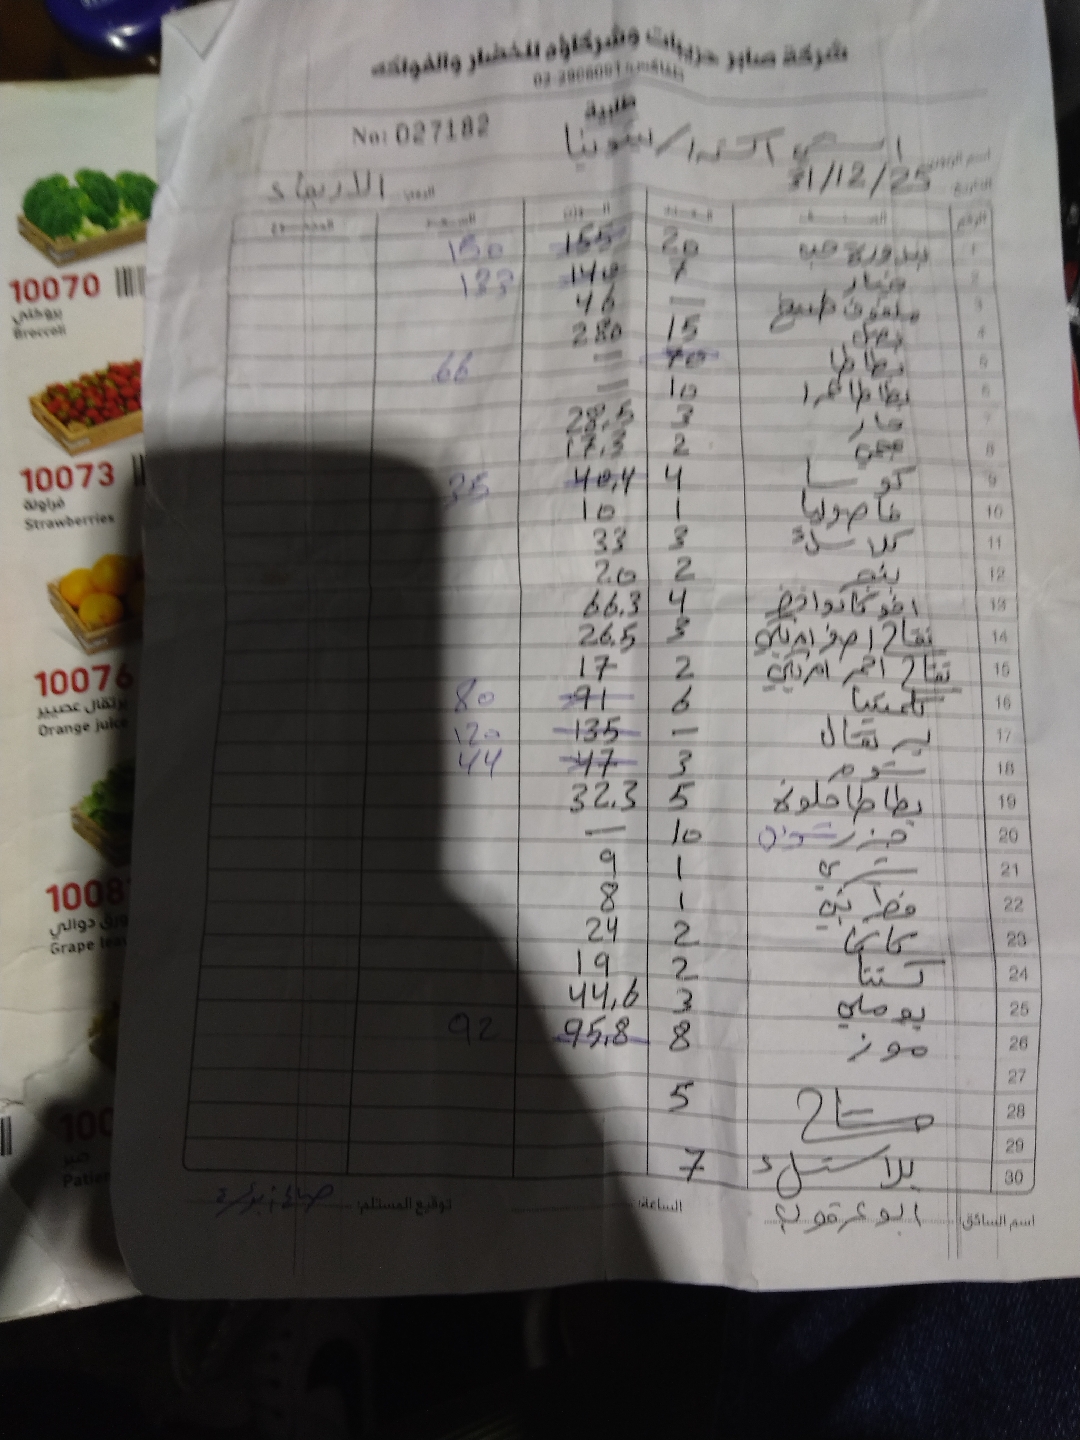 شركة صابر حريبات وشركاؤه للخضار والفواكه
طلبية
No: 027182
اسم الزبون:
التاريخ: 31/12/25 اليوم: الاربعاء
الرقم الصنف العدد الوزن السعر المجموع
1 بندورة حب 20 155 150
2 خيار 7 140 133
3 ملفوف طبيخ — 46
4 بصل 15 280
5 بطاطا 70 — 66
6 بطاطا 10 —
7 3 28,5
8 2 17,3
9 كوسا 4 40,4 35
10 فاصوليا 1 10
11 3 33
12 2 20
13 4 66,3
14 تفاح اصفر 3 26,5
15 تفاح احمر 2 17
16 كلمنتينا 6 91 80
17 برتقال — 135 120
18 ثوم 3 47 44
19 بطاطا حلوة 5 32,3
20 جزر 10 —
21 1 9
22 1 8
23 كاكا 2 24
24 كستنا 2 19
25 بوملي 3 44,6
26 موز 8 95,8 92
27
28 5
29
30 7
اسم السائق: الساعة: توقيع المستلم:
10070
بروكلي
Broccoli
10073
فراولة
Strawberries
10076
برتقال عصير
Orange juice
1008
ورق دوالي
Grape
100